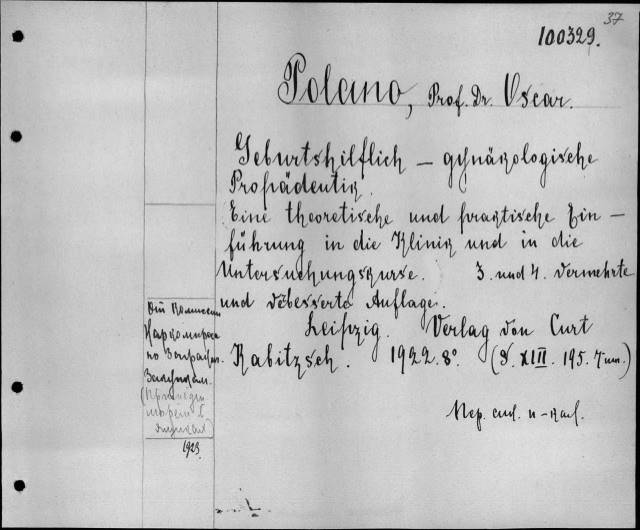 37
100329.
Polano, Prof. Dr. Oscar.
Geburtshilflich – gynäkologische
Propädeutik.
Eine theoretische und praktische Ein –
führung in die Klinik und in die
Untersuchungskurse. 3. und 4. vermehrte
und verbesserte Auflage.
Leipzig. Verlag von Curt
Kabitzsch. 1922. 8°. (8. XIII. 195.
Від Комисии
Наркомпроса
по
1923.